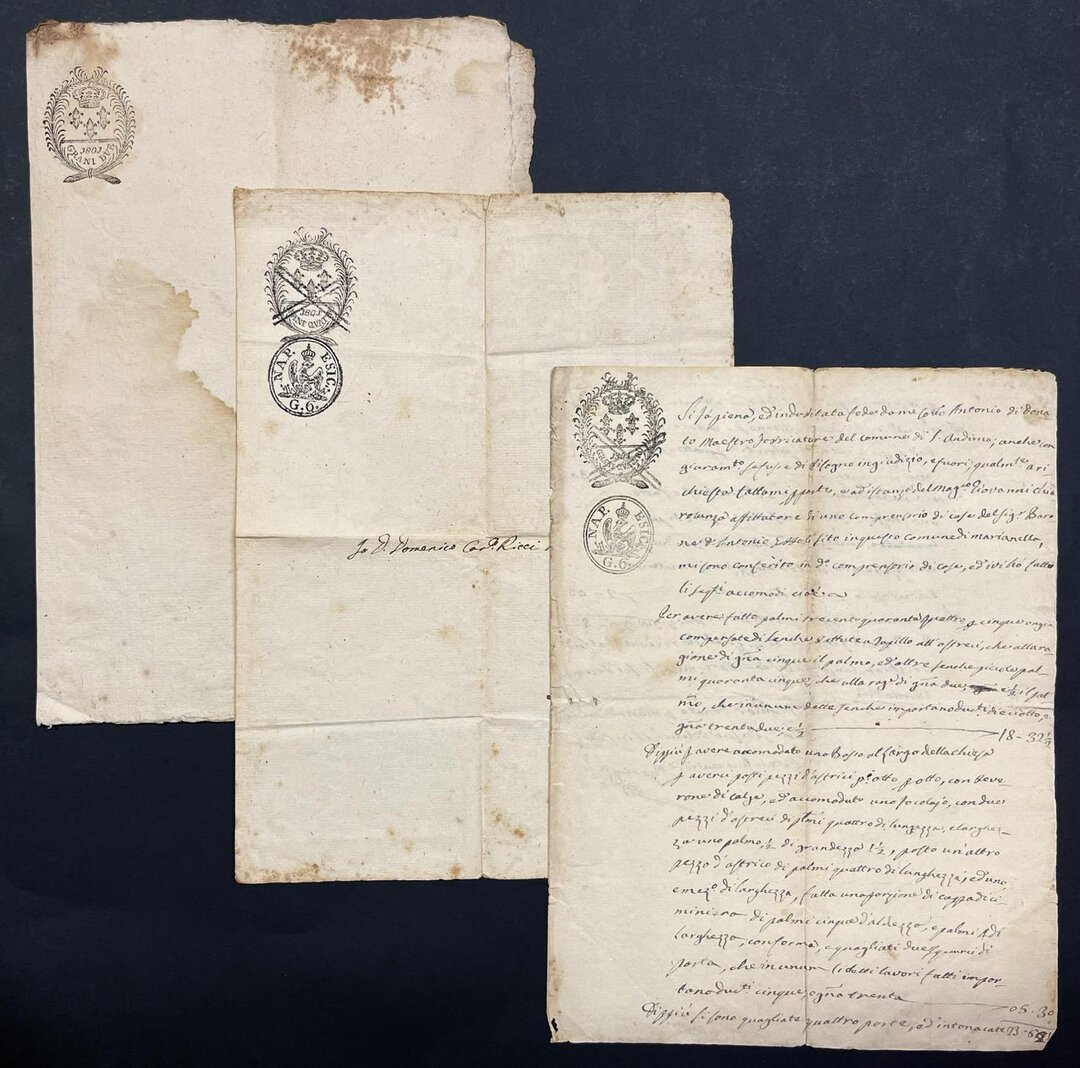 1801
GRANI DUE
1801
NAP. E SIC.
G. 6.
Io D. Domenico Ricci
1801
NAP. E SIC.
G. 6.
Si fà piena, ed indubitata fede da me Antonio di Dona
to Maestro del comune di anche con
giuram.to se fusse di bisogno in giudizio, e fuori, qualm.te a ri
chiesta fattami per parte, e ad istanza del Mag.co Giovanni Chia
rolanza affittatore di uno comprensorio di case del Sig.r Baro
ne D. Antonio sito in questo comune di Marianella,
mi sono conferito in d.o comprensorio di case, ed ivi hò fatto
li seg.ti accomodi cioè
Per avere fatto palmi trecento quaranta quattro, e cinque
compensate di senche battute a lapillo all'astreci, che alla ra
gione di g.na cinque il palmo, ed altre senche piccole pal
mi quaranta cinque, che alla rag.e di g.na due, e ½ il pal
mo, che in unum dette senche importano duc.ti dieciotto, e
g.na trenta due, e ½ 18-32½
Dippiù p avere accomodato uno Basso al Largo della Chiesa
p averci posti pezzi d'astrici con beve
rone di calge, ed accomodato uno focolajo, con due
pezzi d'astreci di plmi quattro di lunghezza, e larghez
za uno palmo, ½ di grandezza 1½, posto un altro
pezzo d'astrico di palmi quattro di lunghezza, ed uno,
e mez.o di larghezza, fatta una porzione di cappa di ci
miniera di palmi cinque d'aldezza, e palmi 4 di
larghezza, conforma, e quagliati due squarci di
porta, che in unum li detti lavori fatti impor
tano duc.ti cinque, e g.na trenta 05-30
Dippiù si sono quagliate quattro porte, ed intonacate